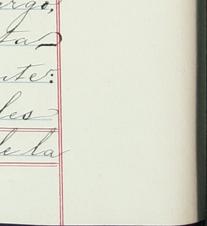 argo,
ta
nte:
les
de la